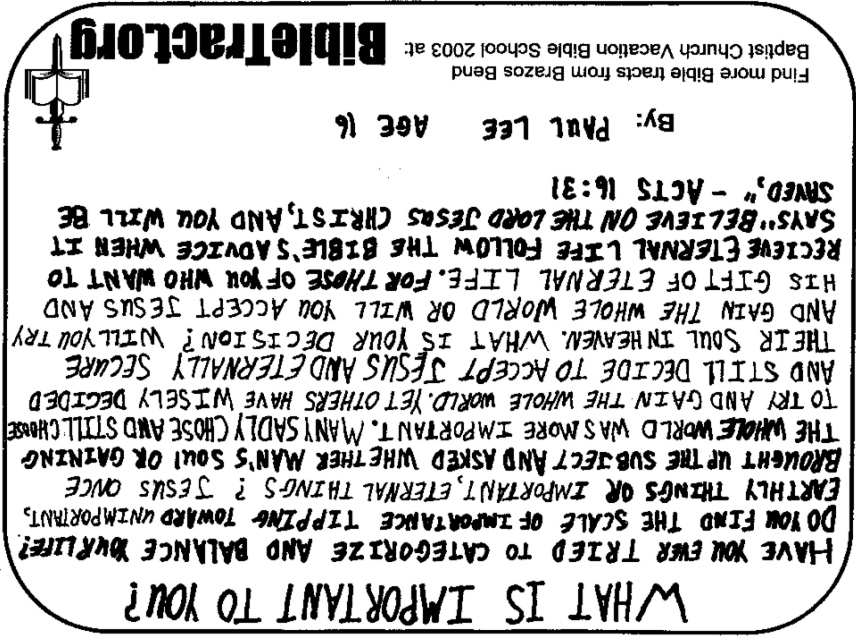 WHAT IS IMPORTANT TO YOU?
HAVE YOU EVER TRIED TO CATEGORIZE AND BALANCE YOUR LIFE?
DO YOU FIND THE SCALE OF IMPORTANCE TIPPING TOWARD UNIMPORTANT,
EARTHLY THINGS OR IMPORTANT, ETERNAL THINGS? JESUS ONCE
BROUGHT UP THE SUBJECT AND ASKED WHETHER MAN'S SOUL OR GAINING
THE WHOLE WORLD WAS MORE IMPORTANT. MANY SADLY CHOSE AND STILL CHOSE
TO TRY AND GAIN THE WHOLE WORLD. YET OTHERS HAVE WISELY DECIDED
AND STILL DECIDE TO ACCEPT JESUS AND ETERNALLY SECURE
THEIR SOUL IN HEAVEN. WHAT IS YOUR DECISION? WILL YOU TRY
AND GAIN THE WHOLE WORLD OR WILL YOU ACCEPT JESUS AND
HIS GIFT OF ETERNAL LIFE. FOR THOSE OF YOU WHO WANT TO
RECIEVE ETERNAL LIFE FOLLOW THE BIBLE'S ADVICE WHEN IT
SAYS "BELIEVE ON THE LORD JESUS CHRIST, AND YOU WILL BE
SAVED," - ACTS 16:31
By: PAUL LEE AGE 16
Find more Bible tracts from Brazos Bend
Baptist Church Vacation Bible School 2003 at:
BibleTract.org